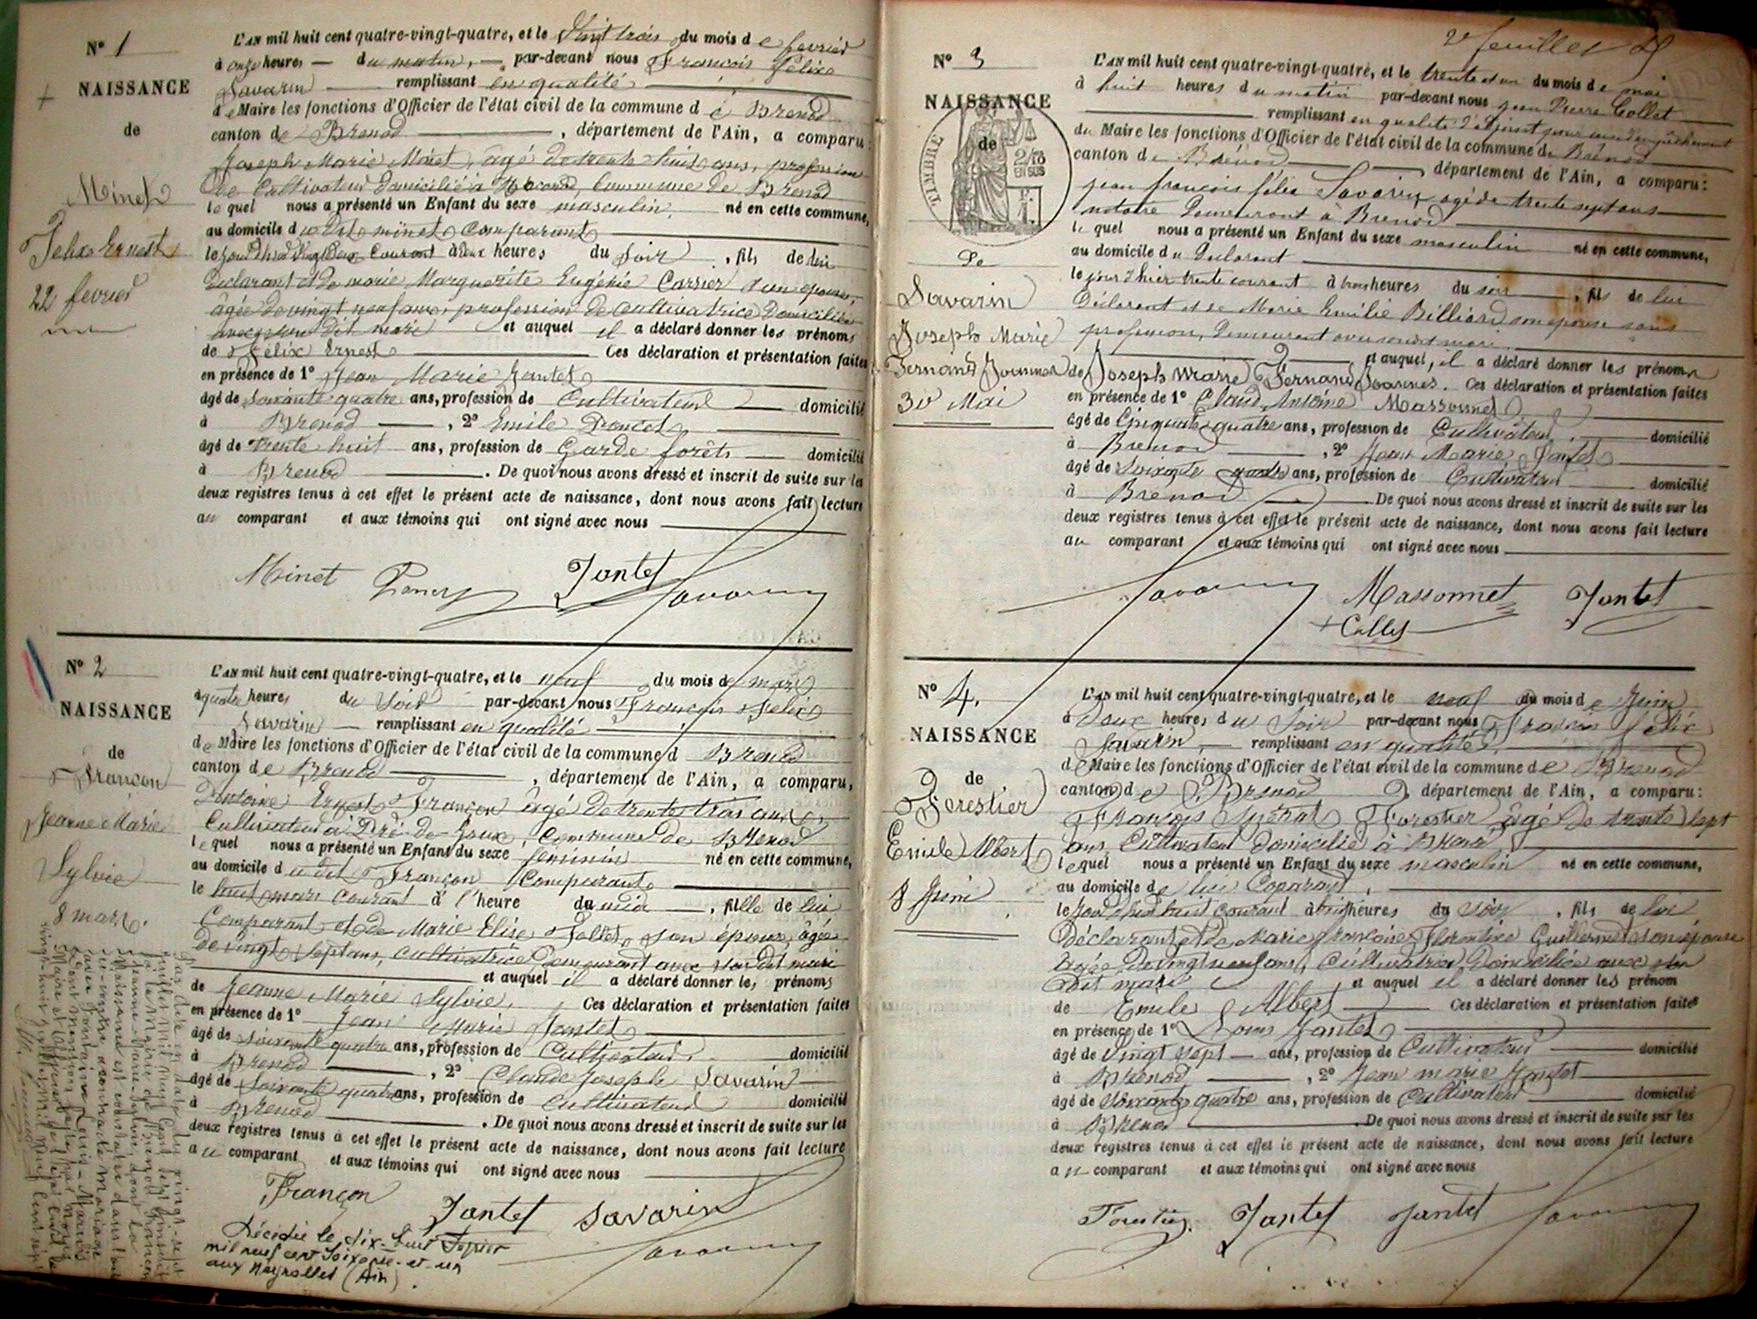 Nº 1
NAISSANCE
de
Minet
Felix Ernest
22 fevrier
L'AN mil huit cent quatre-vingt-quatre, et le Vingt trois du mois de fevrier
à onze heures du matin, par-devant nous François Félix
Savarin remplissant en qualité
de Maire les fonctions d'Officier de l'état civil de la commune de Brenod
canton de Brenod, département de l'Ain, a comparu:
Joseph Marie Minet, âgé de trente huit ans, profession
de Cultivateur domicilié à Commune de Brenod
lequel nous a présenté un Enfant du sexe masculin, né en cette commune,
au domicile du dit minet Comparant
le jour d'hier vingt deux Courant à deux heures du Soir, fils de lui
Déclarant et de marie Marguerite Eugénie Carrier son épouse,
âgée de vingt neuf ans, profession de cultivatrice Domiciliée
avec son dit mari et auquel il a déclaré donner les prénoms
de Félix Ernest Ces déclaration et présentation faites
en présence de 1º Jean Marie Jantet
âgé de soixante quatre ans, profession de Cultivateur domicilié
à Brenod, 2º Emile Poncet
âgé de trente huit ans, profession de Garde forêts domicilié
à Brenod. De quoi nous avons dressé et inscrit de suite sur les
deux registres tenus à cet effet le présent acte de naissance, dont nous avons fait lecture
au comparant et aux témoins qui ont signé avec nous
Minet Poncet Jantet Savarin
Nº 2
NAISSANCE
de
Françon
Jeanne Marie
Sylvie
8 mars.
L'AN mil huit cent quatre-vingt-quatre, et le neuf du mois de mars
à quatre heures du Soir par-devant nous François Félix
Savarin remplissant en qualité
de Maire les fonctions d'Officier de l'état civil de la commune d Brenod
canton de Brenod, département de l'Ain, a comparu,
Antoine Ernest Françon âgé de trente trois ans,
Cultivateur à Pré de Joux, Commune de Brenod
lequel nous a présenté un Enfant du sexe féminin né en cette commune,
au domicile du dit Françon Comparant
le huit mars courant à l'heure du midi, fille de lui
Comparant et de Marie Elise son épouse, âgée
de vingt sept ans, cultivatrice Demeurant avec son dit mari
et auquel il a déclaré donner les prénoms
de Jeanne Marie Sylvie. Ces déclaration et présentation faites
en présence de 1º Jean Marie Jantet
âgé de soixante quatre ans, profession de Cultivateur domicilié
à Brenod, 2º Claude Joseph Savarin
âgé de soixante quatre ans, profession de cultivateur domicilié
à Brenod. De quoi nous avons dressé et inscrit de suite sur les
deux registres tenus à cet effet le présent acte de naissance, dont nous avons fait lecture
au comparant et aux témoins qui ont signé avec nous
Françon Jantet Savarin
Savarin
Décédée le dix-huit Février
mil neuf cent soixante-et-un
aux Neyrolles (Ain).
2e feuillet
Nº 3
NAISSANCE
de
TIMBRE
2/10
EN SUS
De
Savarin
Joseph Marie
Fernand Joannes
30 Mai
L'AN mil huit cent quatre-vingt-quatre, et le trente et un du mois de mai
à huit heures du matin par-devant nous jean Pierre Collet
remplissant en qualité d'adjoint pour
du Maire les fonctions d'Officier de l'état civil de la commune de Brénod
canton de Brénod département de l'Ain, a comparu:
jean françois félix Savarin agé de trente sept ans
notaire Demeurant à Brenod
lequel nous a présenté un Enfant du sexe masculin né en cette commune,
au domicile du Declarant
le jour d'hier trente courant à heures du soir, fils de lui
Déclarant et de Marie Emilie Billiard son épouse sans
profession, Demeurant avec son dit mari
et auquel, il a déclaré donner les prénoms
de Joseph Marie Fernand Joannes. Ces déclaration et présentation faites
en présence de 1º Claude Antoine Massonnet
âgé de Cinquante quatre ans, profession de Cultivateur domicilié
à Brenod, 2º Jean Marie Jantet
âgé de soixante quatre ans, profession de Cultivateur domicilié
à Brenod De quoi nous avons dressé et inscrit de suite sur les
deux registres tenus à cet effet le présent acte de naissance, dont nous avons fait lecture
au comparant et aux témoins qui ont signé avec nous
Savarin Massonnet Jantet
Collet
Nº 4.
NAISSANCE
de
Forestier
Emile Albert
8 Juin
L'AN mil huit cent quatre-vingt-quatre, et le neuf du mois de Juin
à Deux heures du Soir par-devant nous François Félix
Savarin, remplissant en qualité
de Maire les fonctions d'Officier de l'état civil de la commune de Brenod
canton de Brenod département de l'Ain, a comparu:
François Forestier âgé de trente sept
ans, Cultivateur Domicilié à Brenod
lequel nous a présenté un Enfant du sexe masculin né en cette commune,
au domicile de lui Coparant,
le Jour d'hier huit courant à trois heures du Soir, fils de lui
Déclarant et de Marie françoise Florentine Guillermet son épouse
âgée de vingt neuf ans, Cultivatrice Domiciliée avec son
dit mari et auquel il a déclaré donner les prénom
de Emile Albert Ces déclaration et présentation faites
en présence de 1º Louis Jantet
âgé de Vingt sept ans, profession de Cultivateur domicilié
à Brenod, 2º Jean marie Jantet
âgé de Soixante quatre ans, profession de Cultivateur domicilié
à Brenod De quoi nous avons dressé et inscrit de suite sur les
deux registres tenus à cet effet le présent acte de naissance, dont nous avons fait lecture
au comparant et aux témoins qui ont signé avec nous
Forestier Jantet Jantet Savarin